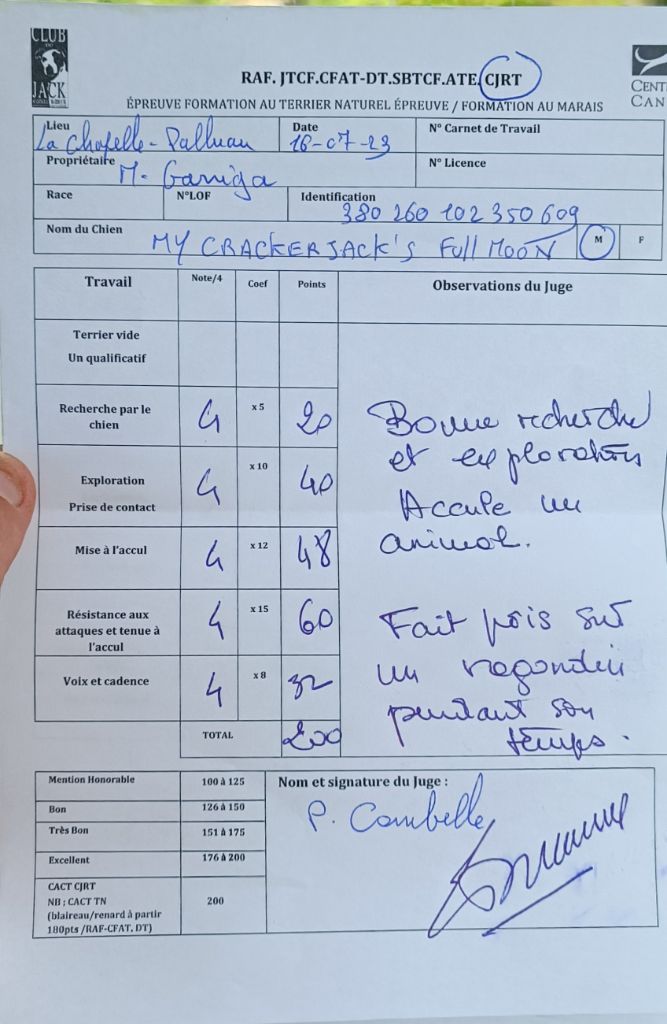 CLUB
DU
JACK
RAF. JTCF.CFAT-DT.SBTCF.ATE. CJRT
CENT
CAN
ÉPREUVE FORMATION AU TERRIER NATUREL ÉPREUVE / FORMATION AU MARAIS
Lieu La Chapelle-Palluau
Date 16-07-23
N° Carnet de Travail
Propriétaire M. Garriga
N° Licence
Race
N°LOF
Identification 380 260 102 350 609
Nom du Chien MY CRACKERJACK'S Full MOON
M
F
Travail
Note/4
Coef
Points
Observations du Juge
Terrier vide
Un qualificatif
Recherche par le chien 4 x 5 20
Exploration
Prise de contact 4 x 10 40
Mise à l'accul 4 x 12 48
Résistance aux attaques et tenue à l'accul 4 x 15 60
Voix et cadence 4 x 8 32
TOTAL 200
Bonne recherche
et exploration
Accule un
animal.
Fait pris sur
un ragondin
pendant son
temps.
Mention Honorable 100 à 125
Bon 126 à 150
Très Bon 151 à 175
Excellent 176 à 200
CACT CJRT
NB ; CACT TN
(blaireau/renard à partir
180pts /RAF-CFAT. DT) 200
Nom et signature du Juge :
P. Combelle